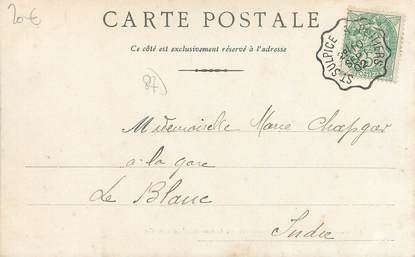 20€
CARTE POSTALE
Ce côté est exclusivement réservé à l'adresse
ST SULPICE
Mademoiselle Marie
à la gare
Le Blanc
Indre